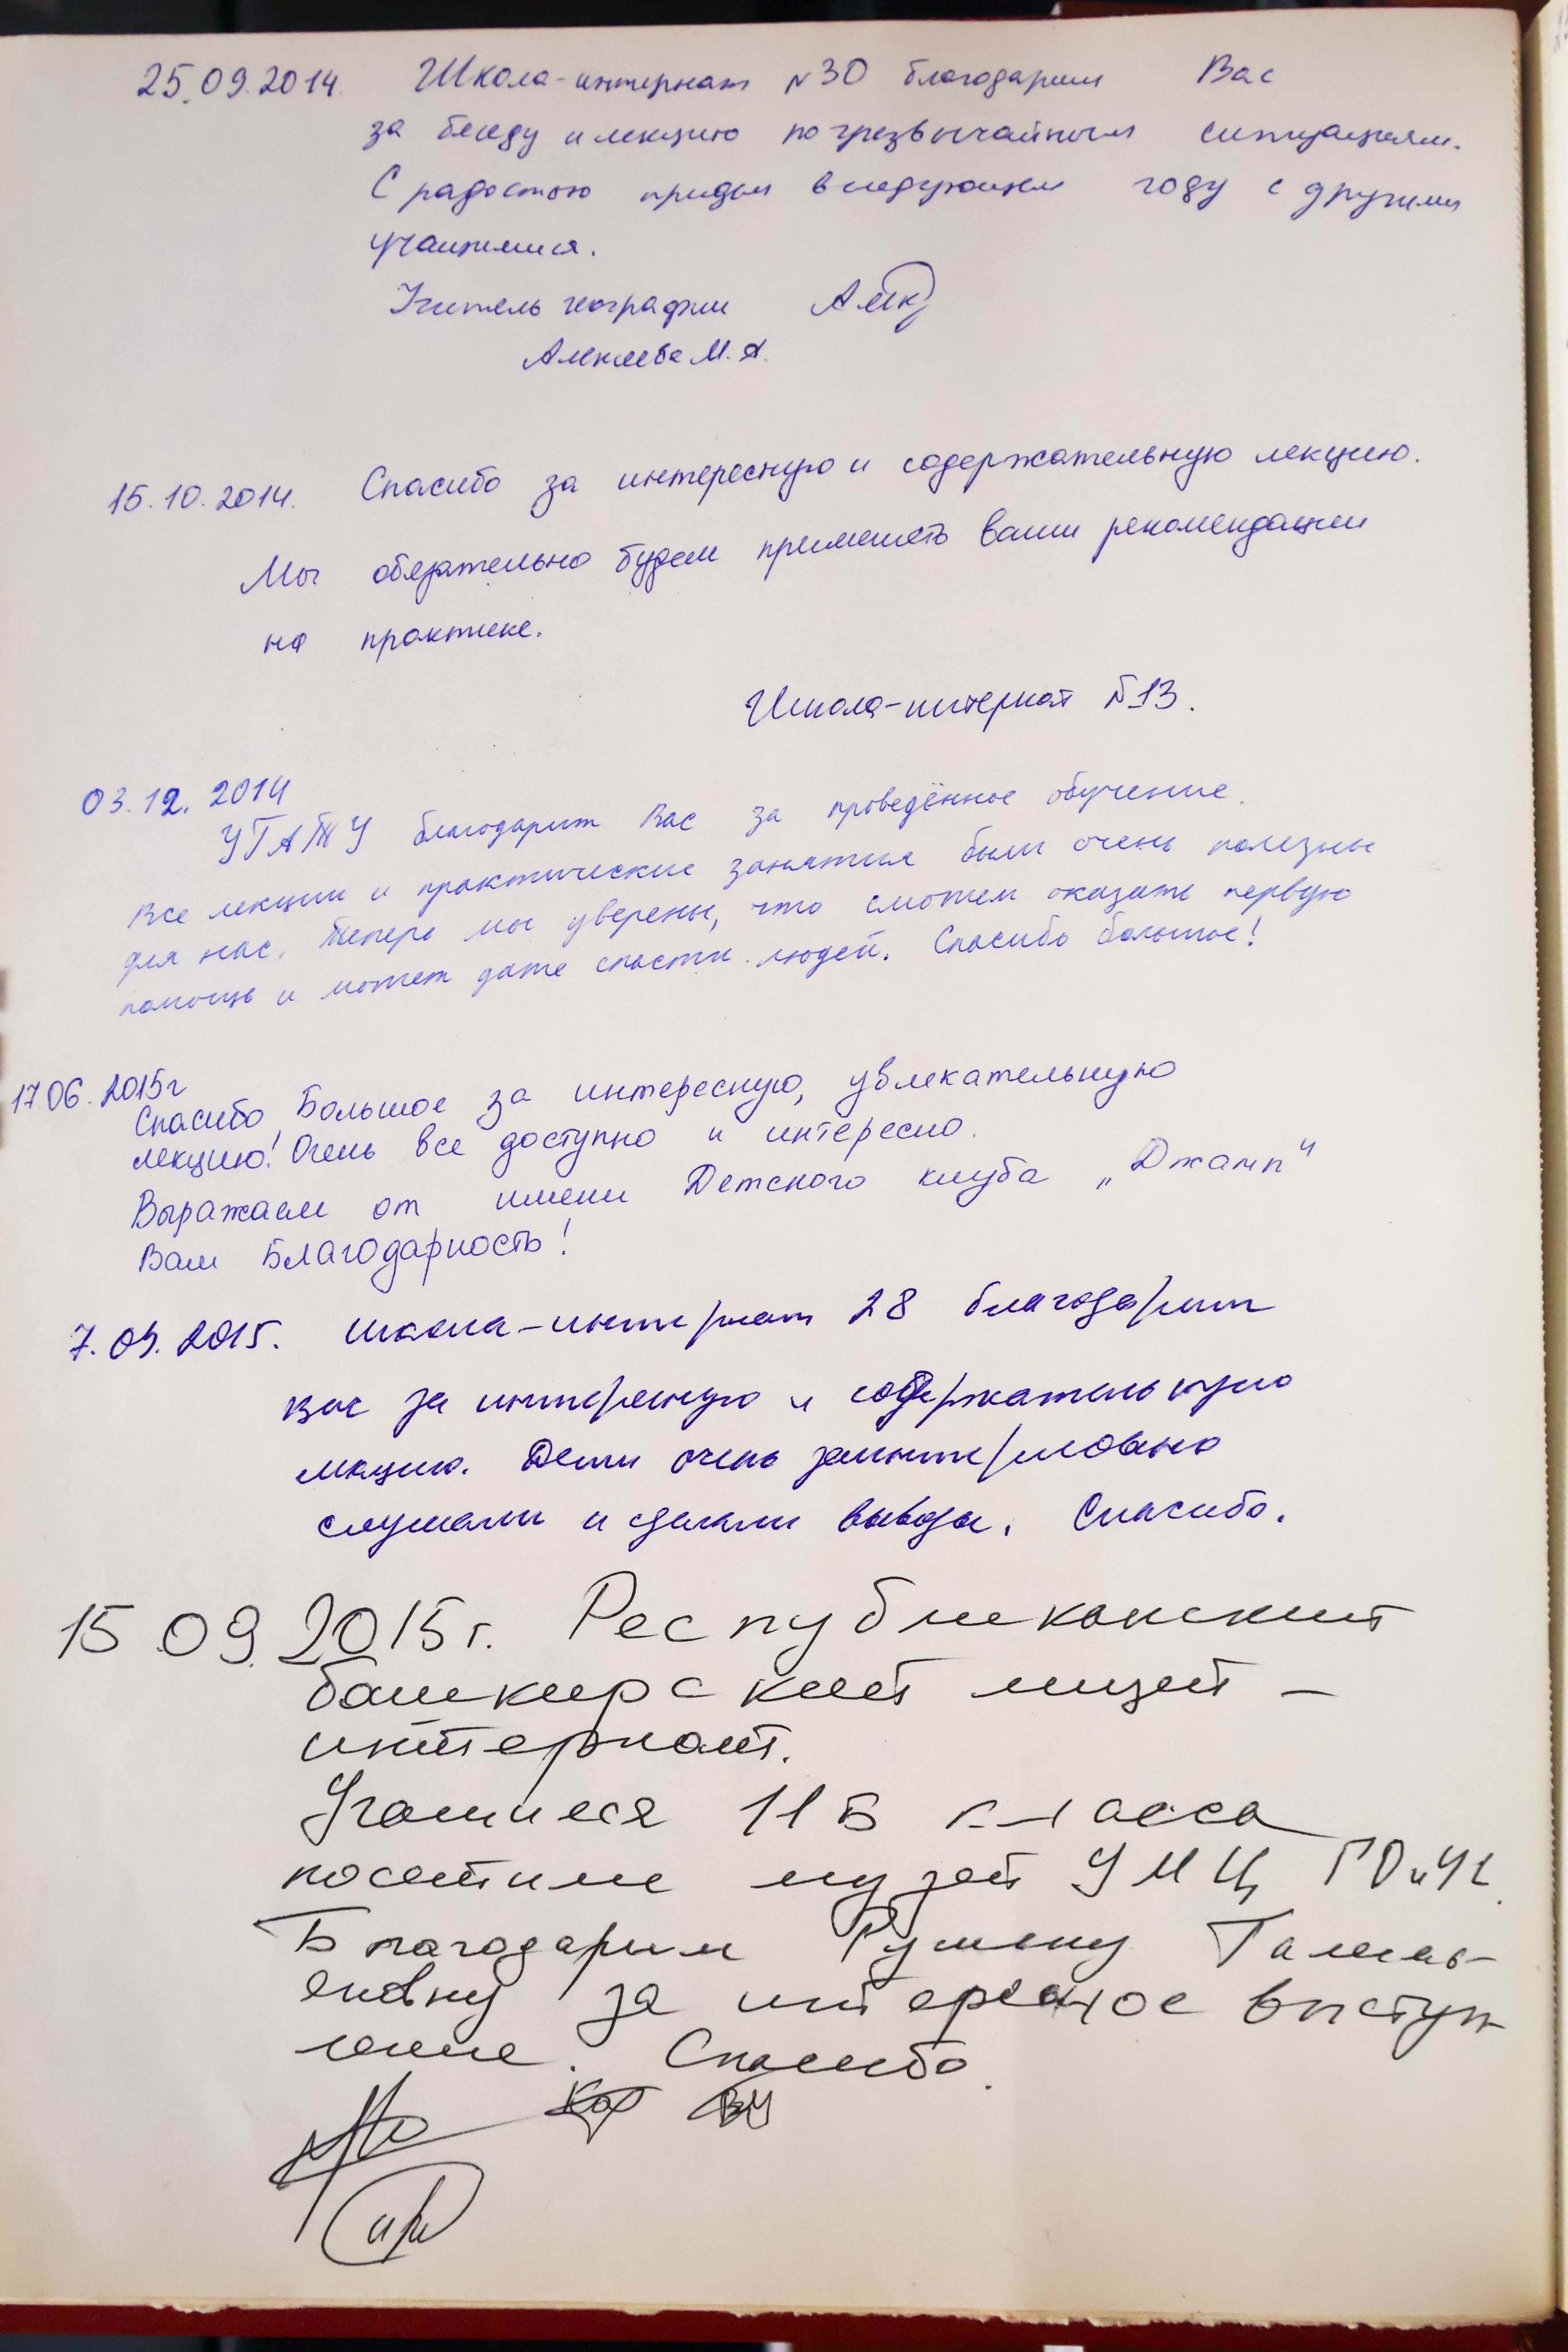 25.09.2014. Школа-интернат №30 благодарит Вас
за беседу и лекцию по чрезвычайным ситуациям.
С радостью придем в следующем году с другими
учащимися.
Учитель географии
Алексеева М.Я.
15.10.2014. Спасибо за интересную и содержательную лекцию.
Мы обязательно будем применять ваши рекомендации
на практике.
Школа-интернат №13.
03.12.2014
УГАТУ благодарит Вас за проведённое обучение.
Все лекции и практические занятия были очень полезны
для нас. Теперь мы уверены, что сможем оказать первую
помощь и может даже спасти людей. Спасибо большое!
17.06.2015г
Спасибо Большое за интересную, увлекательную
лекцию! Очень все доступно и интересно.
Выражаем от имени Детского клуба „Джамп“
Вам Благодарность!
7.09.2015. Школа-интернат 28 благодарит
Вас за интересную и содержательную
лекцию. Дети очень заинтересовано
слушали и сделали выводы. Спасибо.
15.09.2015г. Республиканский
башкирский лицей –
интернат.
Учащиеся 11 Б класса
посетили музей УМЦ ГО и ЧС.
Благодарим
за интересное выступ-
ление. Спасибо.